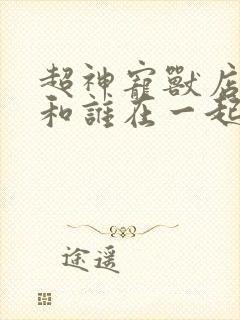 超神寵獸店
和誰在一起
途遥